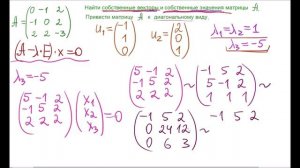 Найти собственные векторы и собственные значения матрицы A
Привести матрицу A к диагональному виду.
A = (0 -1 2
-1 0 2
2 2 -3)
u₁ = (-1
1
0)
u₂ = (2
0
1)
λ₁=λ₂=1
λ₃=-5
(A-λ·E)·x=0
λ₃=-5
(5 -1 2
-1 5 2
2 2 2) (x₁
x₂
x₃) = 0
(5 -1 2
-1 5 2
2 2 2) ~ (-1 5 2
5 -1 2
1 1 1) ~
(-1 5 2
0 24 12
0 6 3) ~
-1 5 2